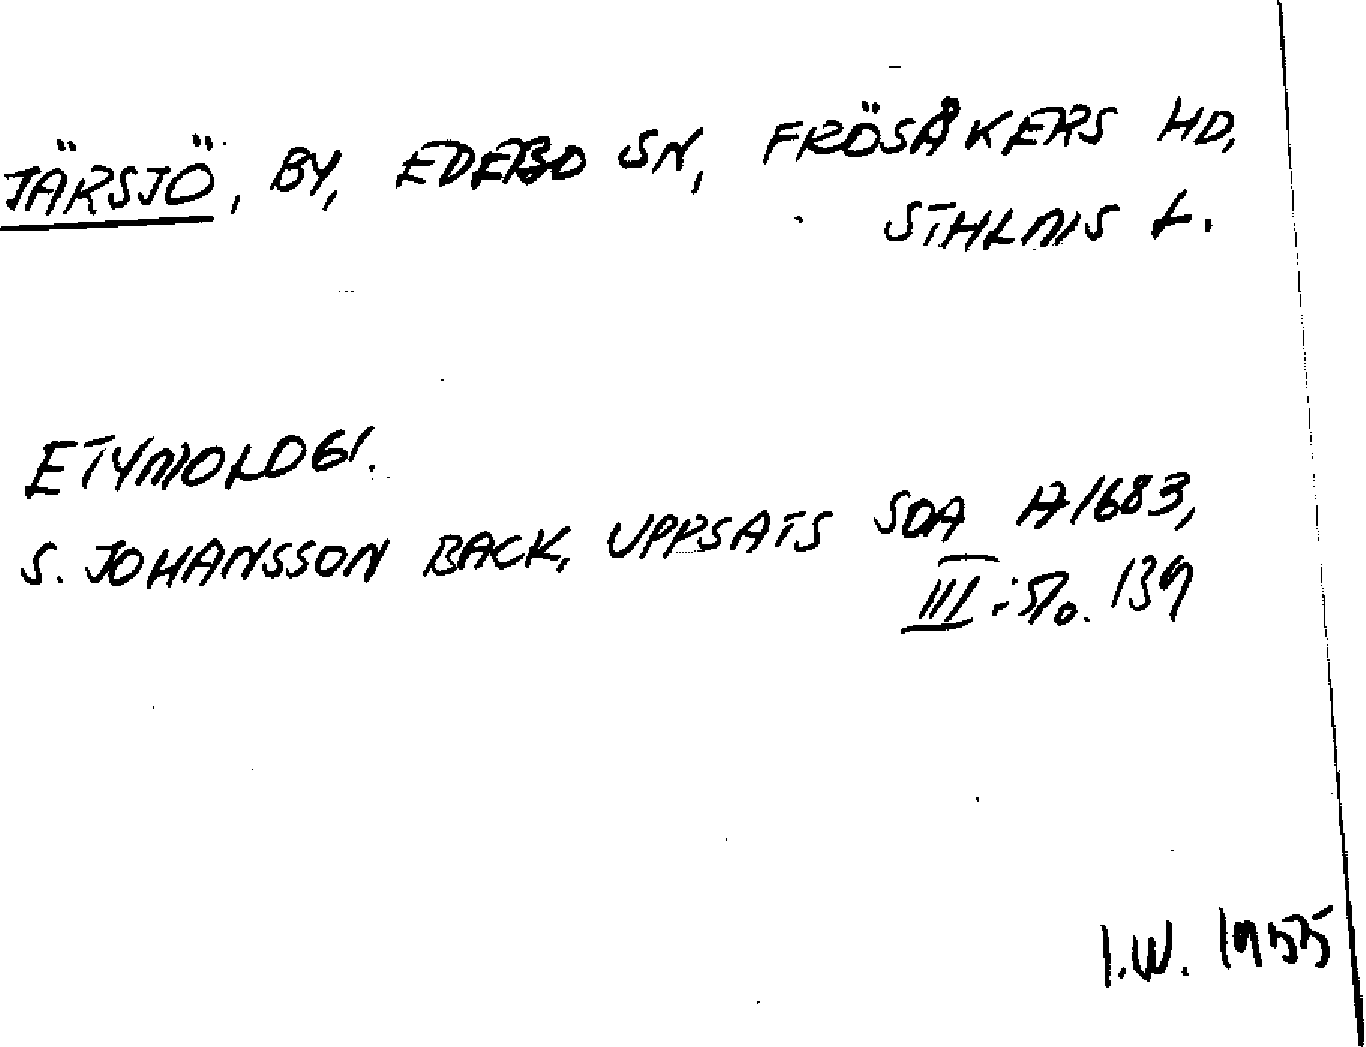 JÄRSJÖ, BY, EDEBO SN, FRÖSÅKERS HD,
STHLMS L.
ETYMOLOGI.
S. JOHANSSON BACK, UPPSATS SOA A1683,
III: S/o. 139
I.W. 1955